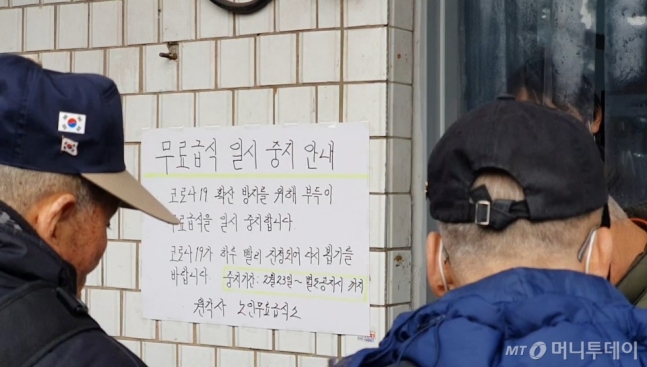 무료급식 일시 중지 안내
코로나19 확산 방지를 위해 부득이
무료급식을 일시 중지합니다.
코로나19가 하루 빨리 진정되어 다시 뵙기를
바랍니다. 중지기간: 2월23일~별도공지시 까지
원각사 노인무료급식소
MT 머니투데이